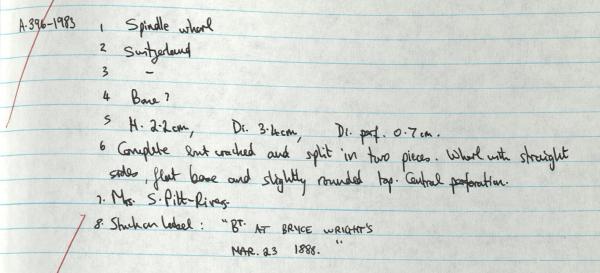 A.396-1983 1 Spindle whorl
2 Switzerland
3 -
4 Bone?
5 H. 2.2cm, Di. 3.4cm, Di. perf. 0.7cm.
6 Complete but cracked and split in two pieces. Whorl with straight
sides, flat base and slightly rounded top. Central perforation.
7. Mrs. S. Pitt-Rivers.
8. Stuck on label: "BT. AT BRYCE WRIGHT'S
MAR. 23 1888."